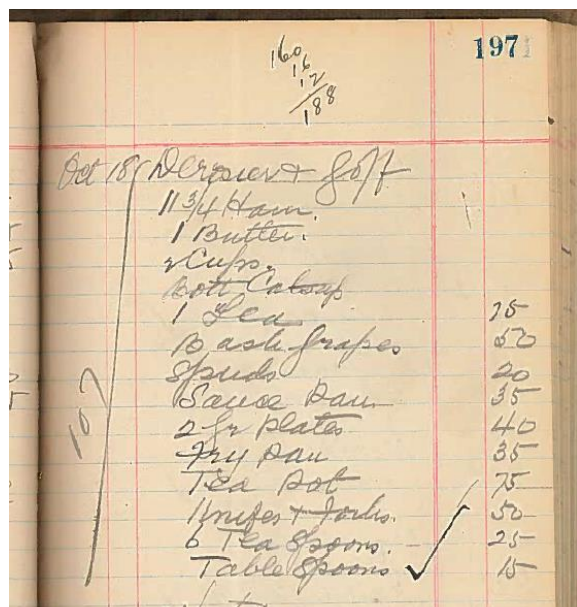 197
160
16
12
188
Oct 18 Derosier & Goff
11 3/4 Ham.
1 Butter.
2 Cups.
Bott Catsup
1 Tea 25
Bask Grapes 50
Spuds 20
Sauce Pan 35
2 fr Plates 40
Fry Pan 35
Tea Pot 75
Knifes & Forks. 50
6 Tea Spoons. 25
Table Spoons 15
107